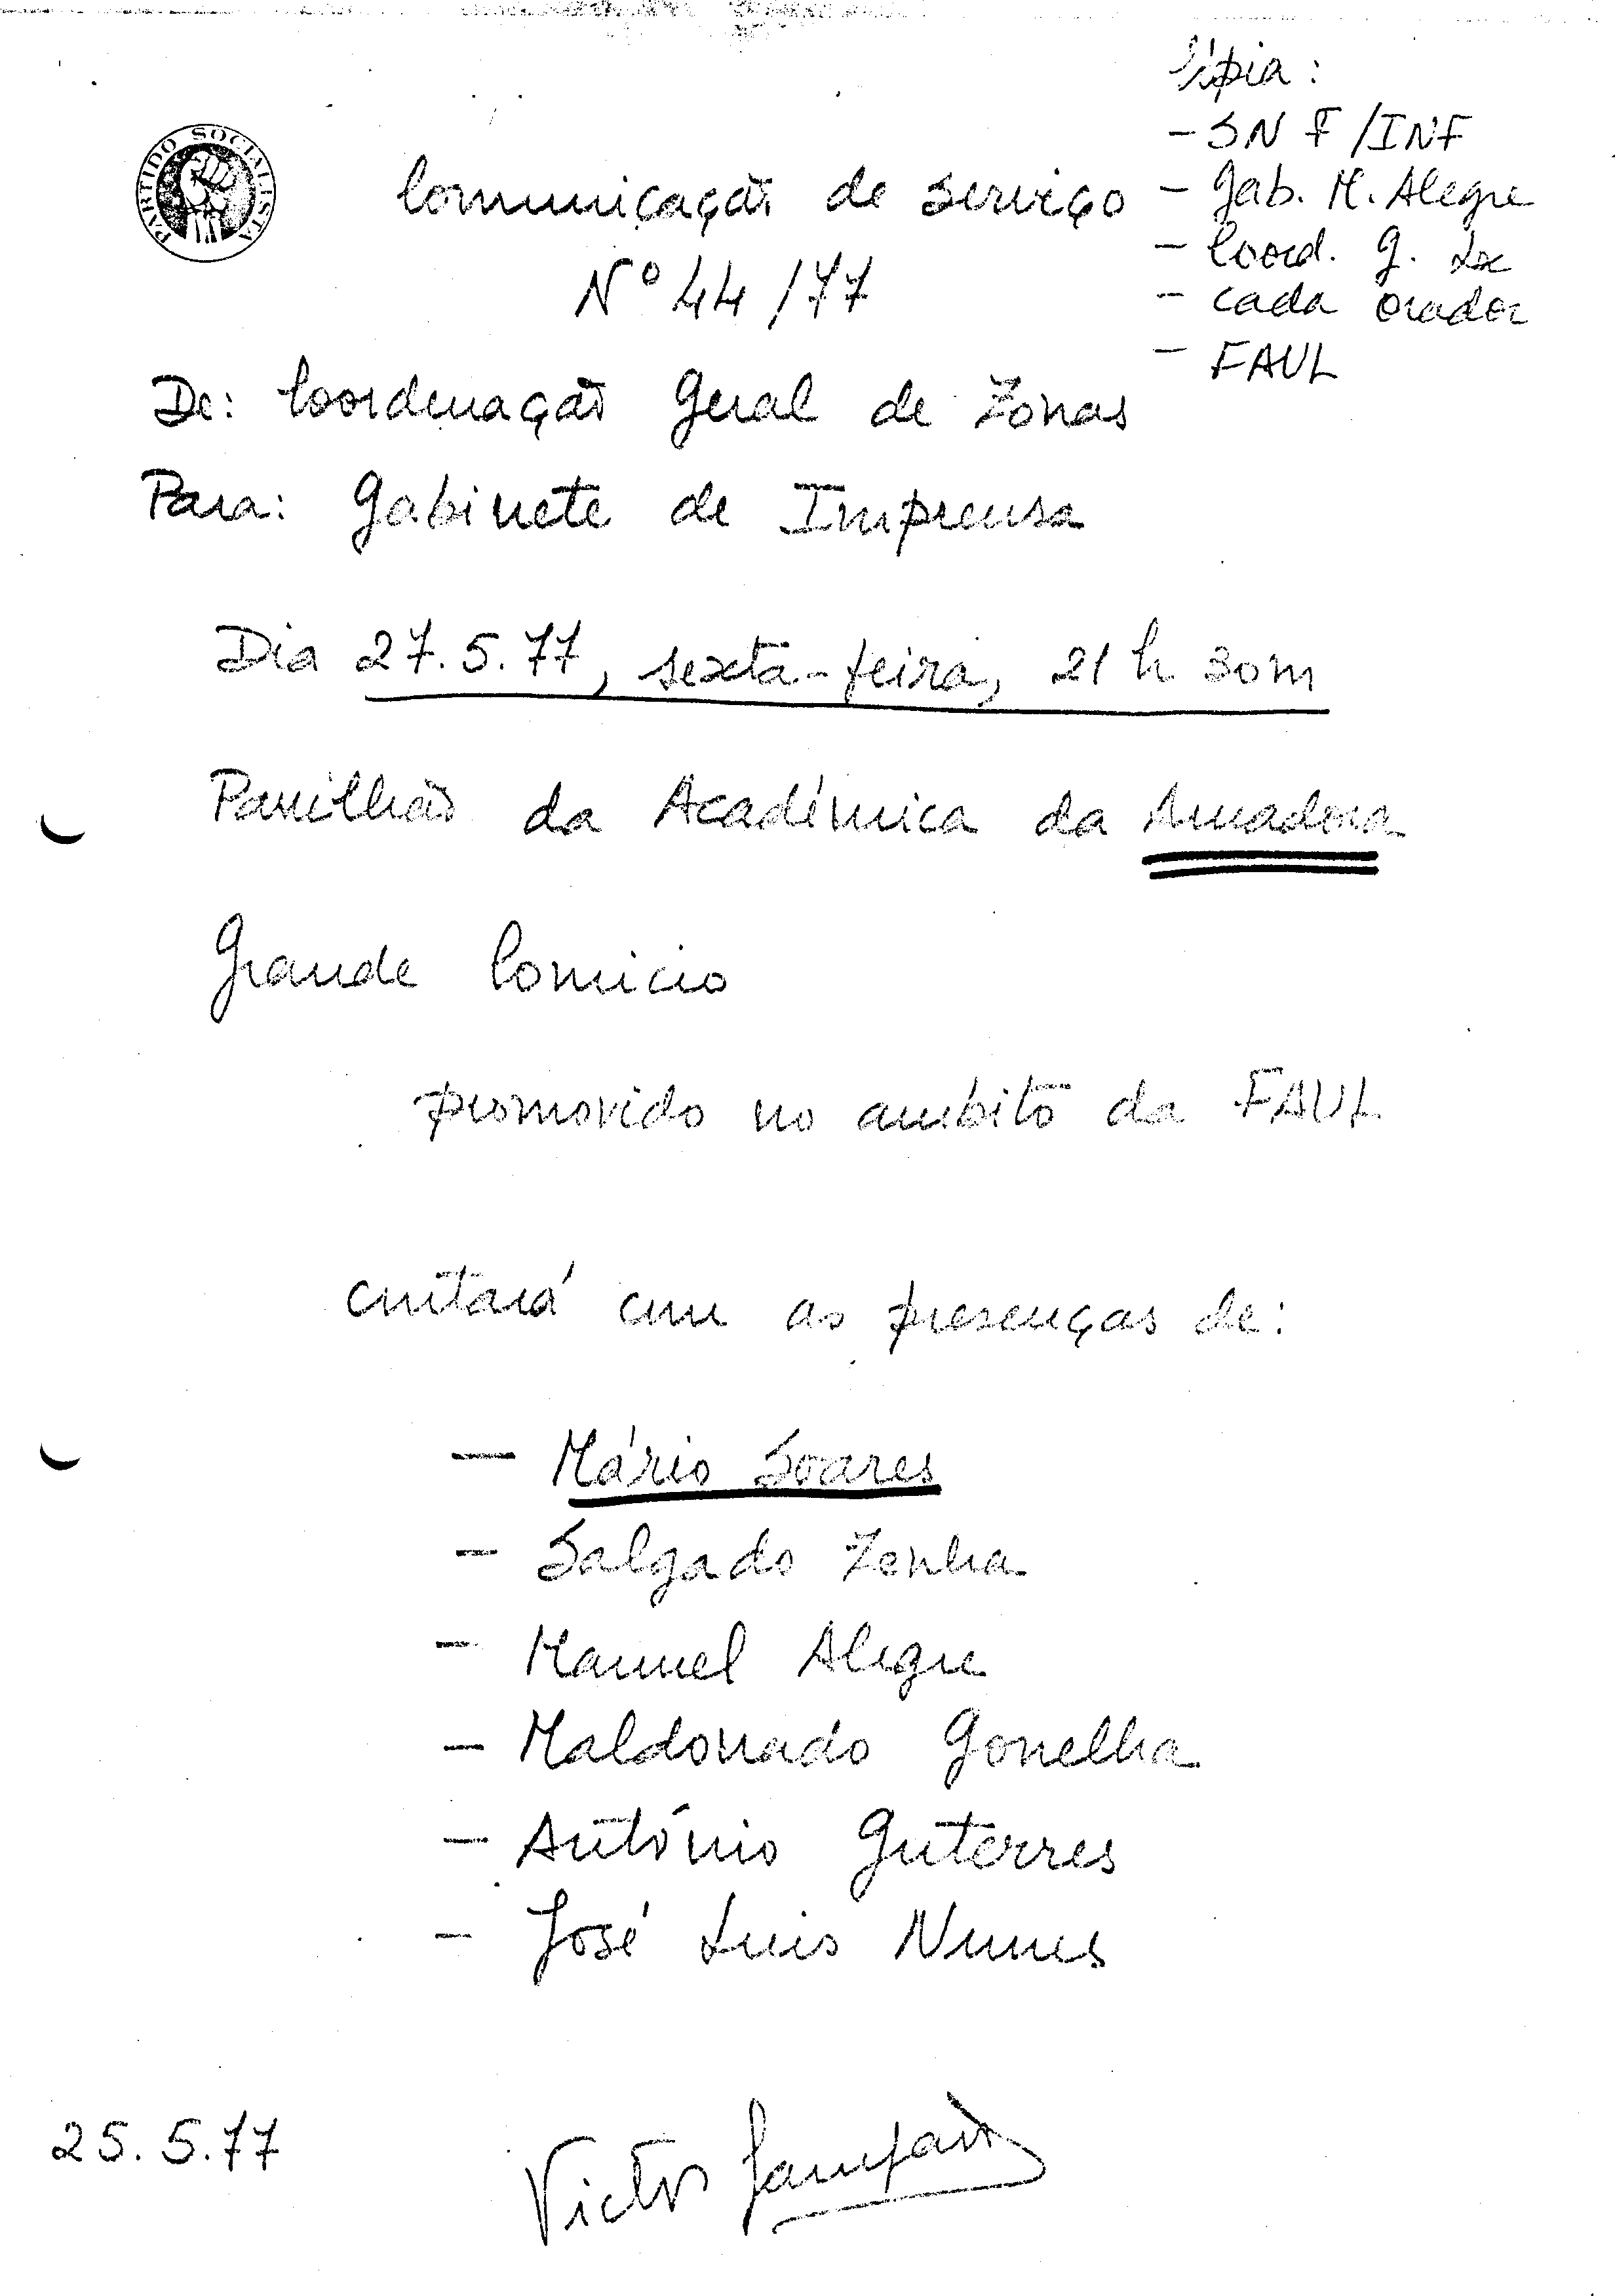 PARTIDO SOCIALISTA
Cópia:
- SN F/INF
- Gab. M. Alegre
- Coord. G. Lx
- cada orador
- FAUL
Comunicação de Serviço
Nº 44/77
De: Coordenação Geral de Zonas
Para: Gabinete de Imprensa
Dia 27.5.77, sexta-feira, 21 h 30m
Pavilhão da Académica da Amadora
Grande Comicio
promovido no ambito da FAUL
contará com as presenças de:
- Mário Soares
- Salgado Zenha
- Manuel Alegre
- Maldonado Gonelha
- António Guterres
- José Luis Nunes
25.5.77
Victor